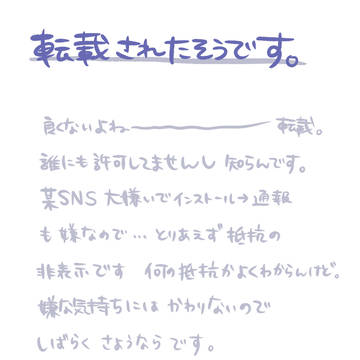 転載されたそうです。
良くないよね──────転載。
誰にも許可してませんし 知らんです。
某SNS 大嫌いでインストール→通報
も嫌なので…とりあえず抵抗の
非表示です 何の抵抗かよくわからんけど。
嫌な気持ちには かわりないので
しばらく さようなら です。